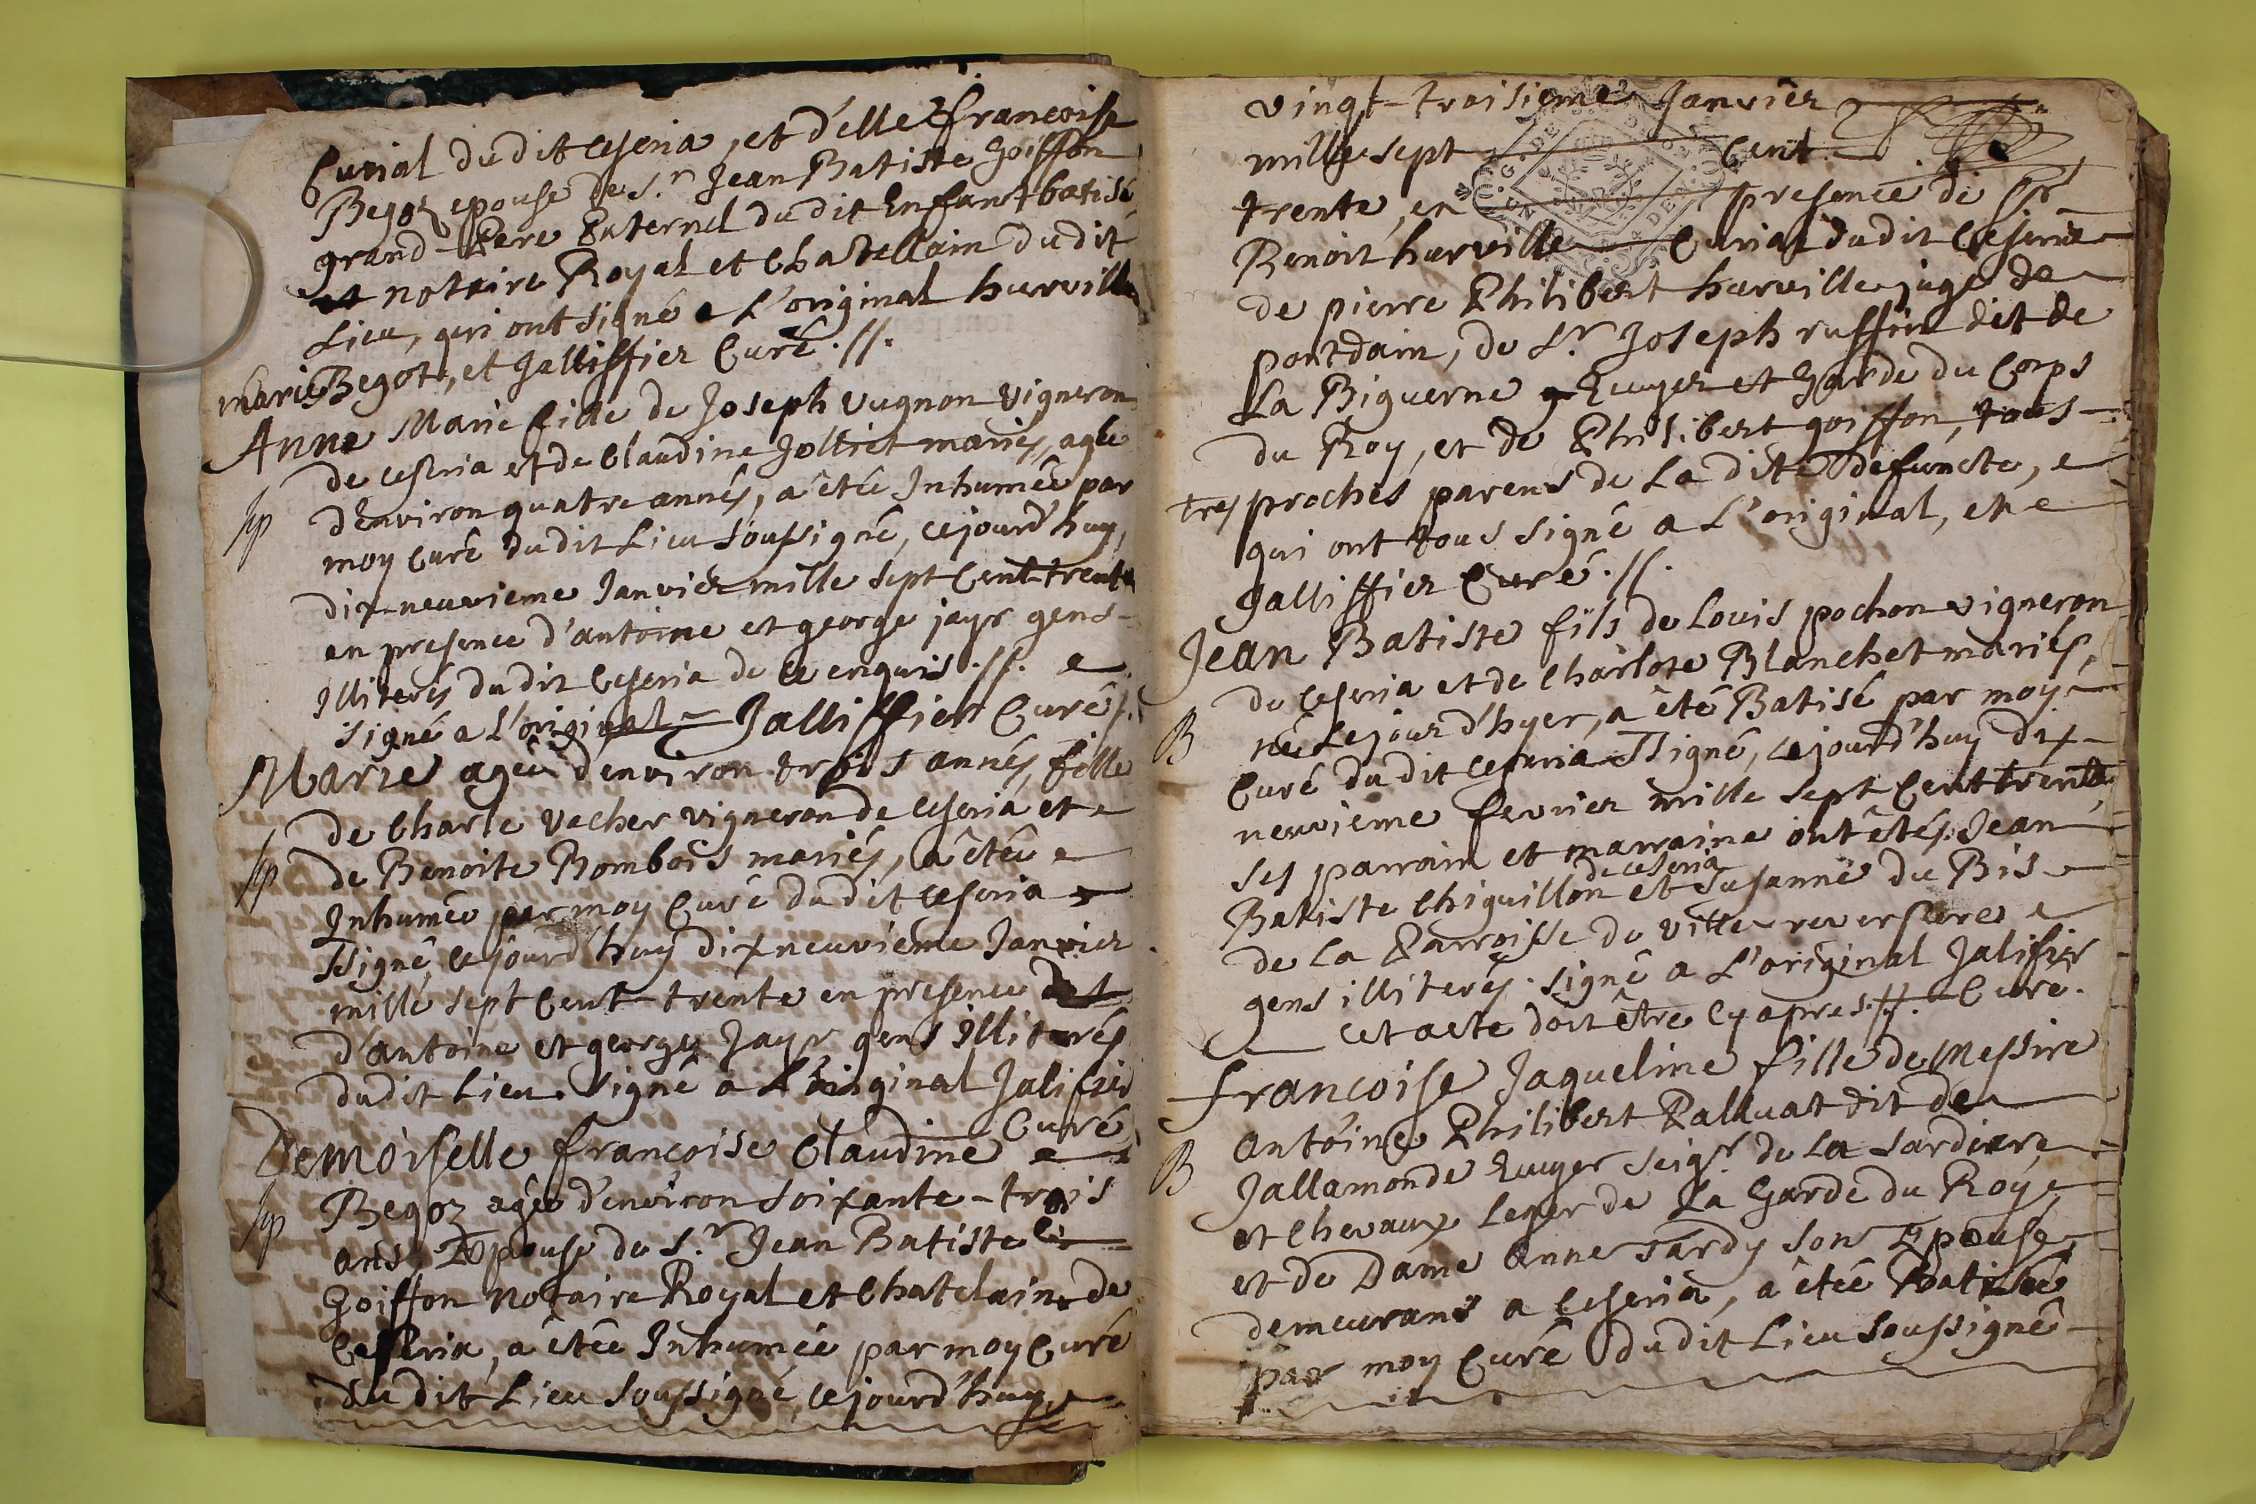 Curial dudit Ceseria, et d'elle francoise
Begoz epouse de S.r Jean Batiste Goiffon
grand-Pere Paternel dudit Enfant batisé
et notaire Royal et Chastellain dudit
Lieu, qui ont signé a L'original hurville
marie Begot, et Jalliffier Curé .//.
Anne Marie fille de Joseph vugnon vigneron
de ceseria et de Claudine Jolliet mariés, agée
sp d'Environ quatre annés, a êtée Inhumée par
moy Curé dudit Lieu soussigné, cejourd'huy,
dix-neuvieme Janvier mille sept Cent trente
en presence d'antoine et george jayr gens
Illiterés dudit Ceseria de ce enquis .//.
signé a L'original Jalliffier Curé //.
Marie agée d'environ trois annés, fille
de Charle vacher vigneron de Ceseria et
sp de Benoite Bombois mariés, a êtée
Inhumée par moy Curé dudit Ceseria
ssigné, cejourd'huy dix neuvième Janvier
mille sept Cent-trente en presence
d'antoine et george Jayr gens Illiterés
dudit Lieu. signé a L'original Jalifier
Curé
Demoiselle francoise Claudine
sp Begoz agée d'environ soixante-trois
ans, Epouse de S.r Jean Batiste
Goiffon Notaire Royal et Chatelain de
Ceseria, a êtée Inhumée par moy Curé
dudit Lieu soussigné, cejourd'huy
vingt-troisieme Janvier
mille sept Cent
trente, en presence de Sr
Benoit hurville Curial dudit Ceseria
de pierre Philibert hurville juge de
pontdain, de S.r Joseph ruffin dit de
La Biguerne Ecuyer et Garde du Corps
du Roy, et de Philibert goiffon, tous
tres proches parens de La dite defuncte,
qui ont tous signé a L'original,
Jalliffier Curé .//.
Jean Batiste fils de Louis pochon vigneron
de Ceseria et de Charlote Blanchet mariés,
B né Le jour d'hyer, a êté Batisé par moy
Curé dudit Ceseria ssigné, cejourd'huy dix-
neuvieme fevrier mille sept Cent trente,
ses parrain et marraine ont êtés Jean
de ceseria
Batiste Chiguillon et Susanne du Bis
de La Parroisse de Ville reversure
gens illiterés. signé a L'original Jalifier
cet acte doit être cy apres .//. Curé.
francoise Jaqueline fille de Messire
Antoine Philibert Palluat dit de
B Jallamonde Ecuyer seig.r de La Sardiere
et Chevaux Leger de La Garde du Roy,
et de Dame Anne Tardy son Epouse
demeurans a Ceseria, a êtée Batisée
par moy Curé dudit Lieu soussigné